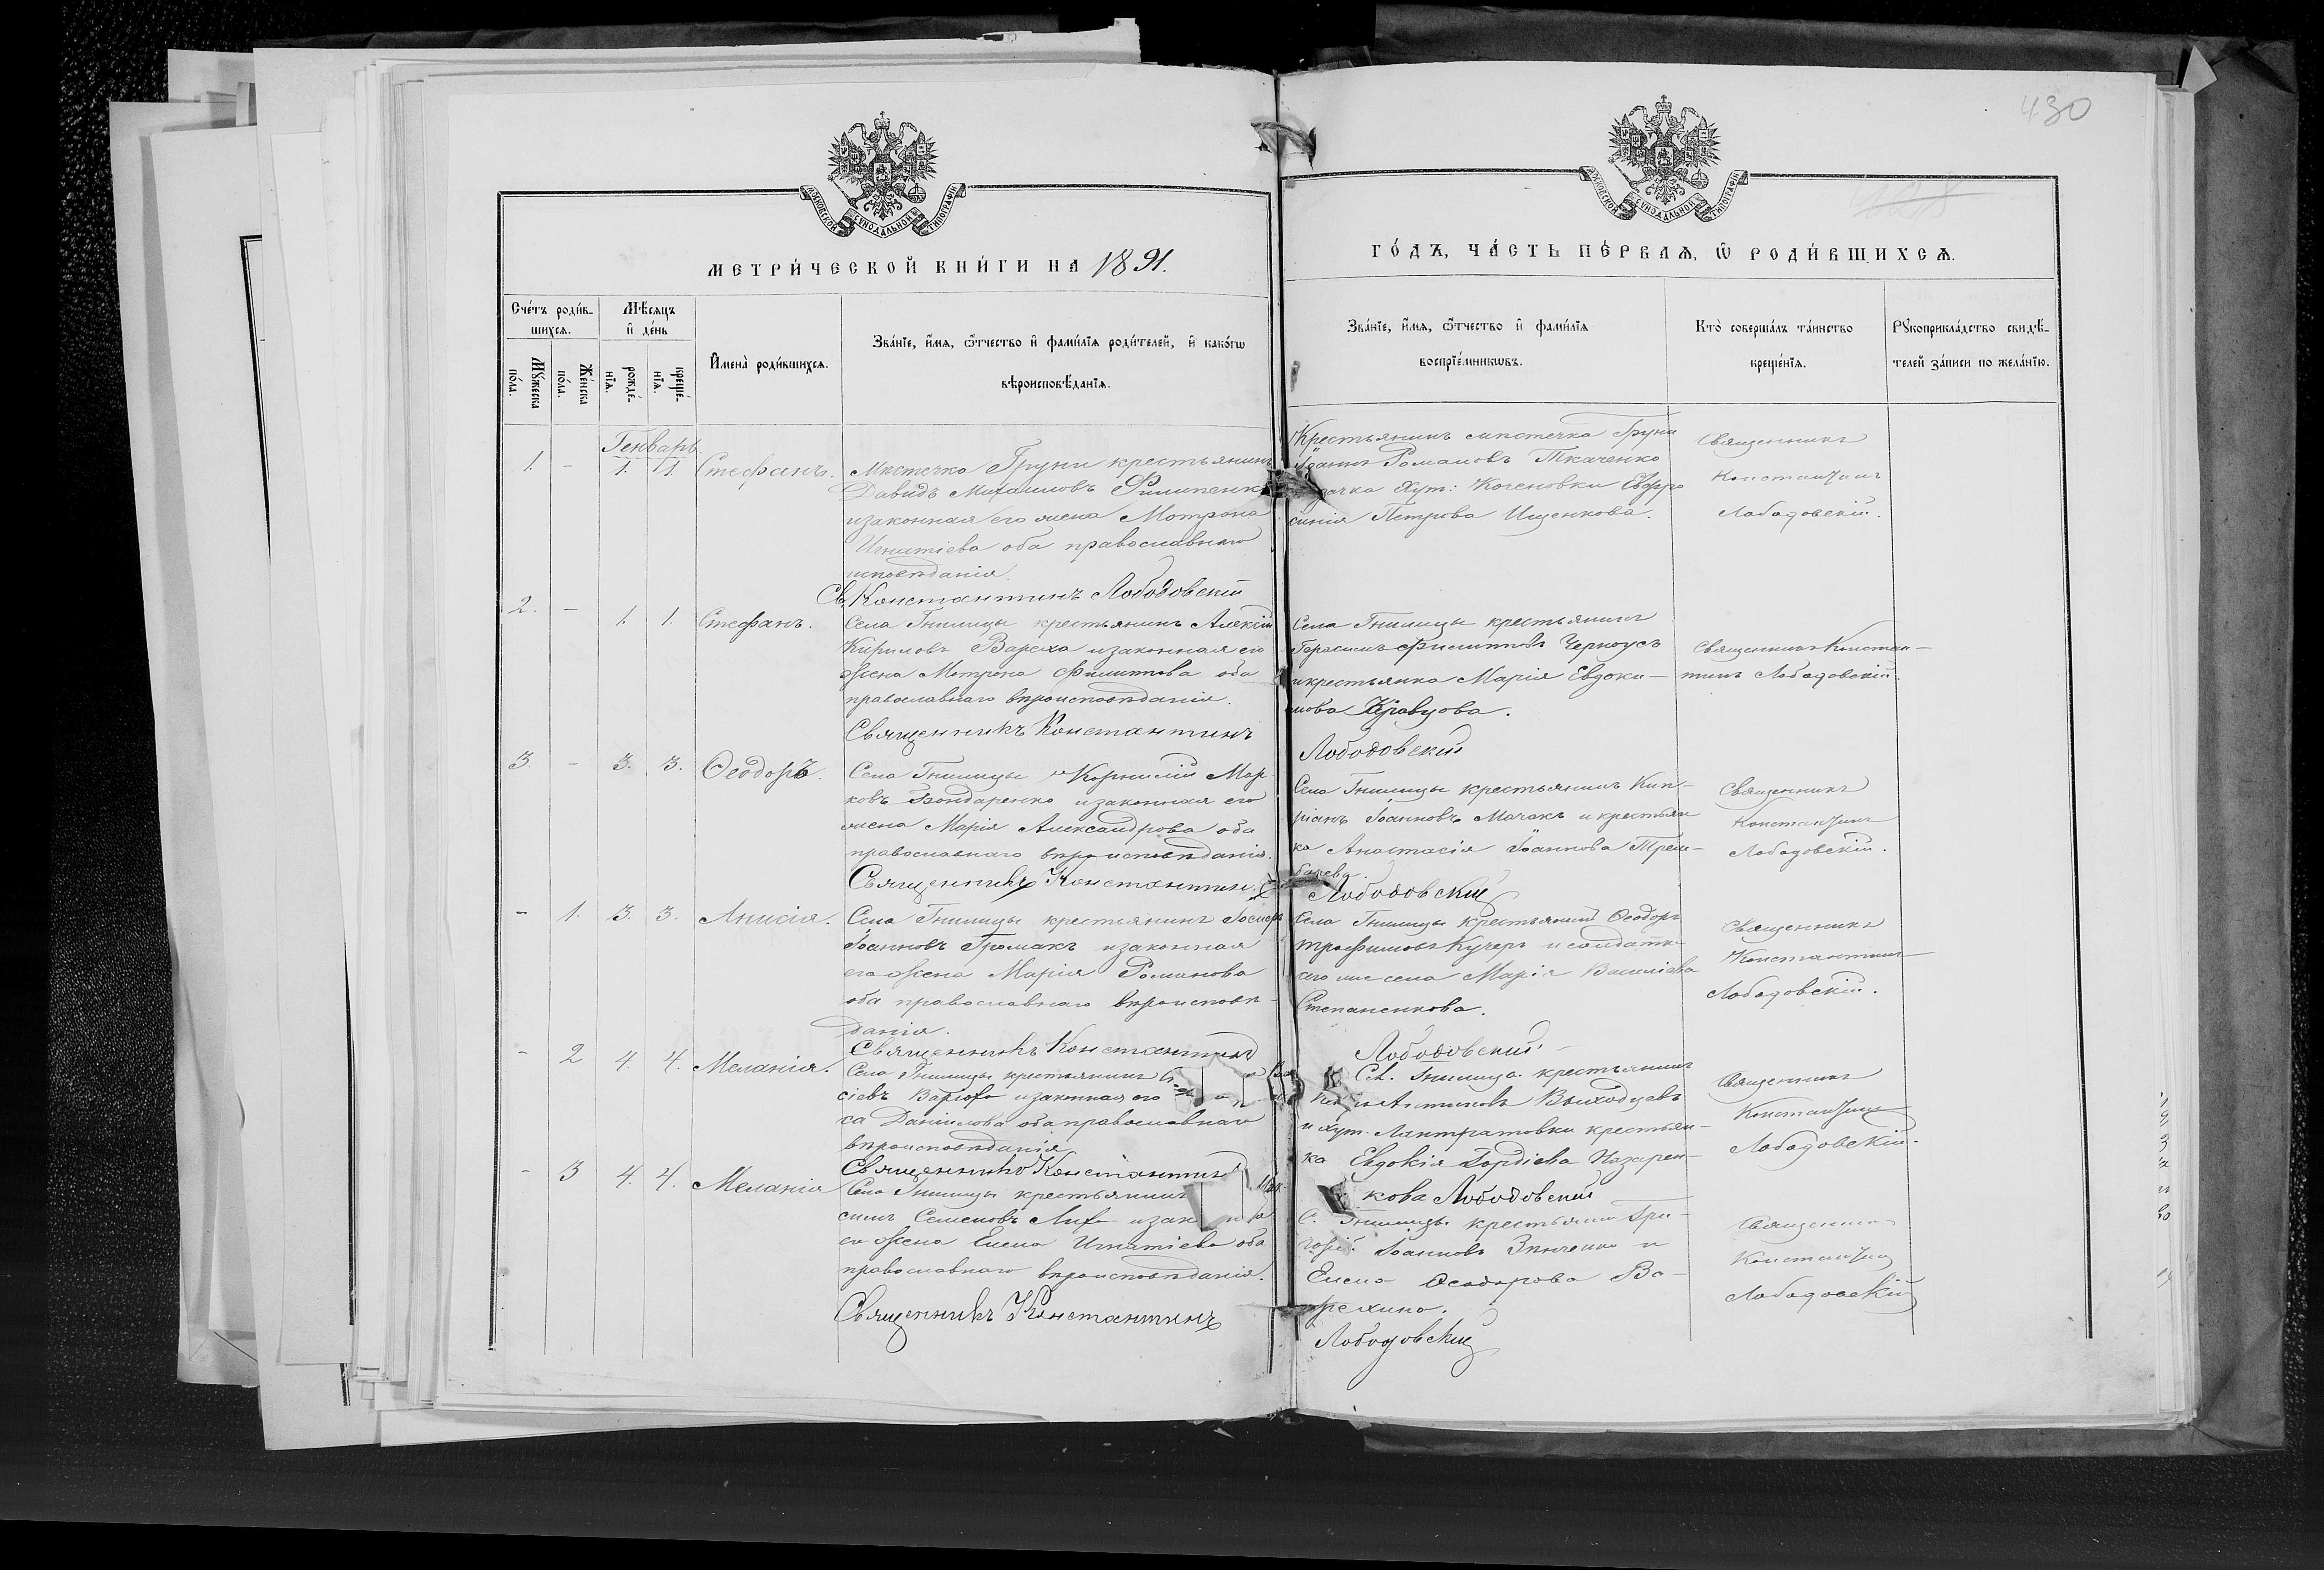 430
МОСКОВСКОЙ СУНОДАЛЬНОЙ ТИПОГРАФІИ
МОСКОВСКОЙ СУНОДАЛЬНОЙ ТИПОГРАФІИ
МЕТРИ́ЧЕСКОЙ КНИ́ГИ НА 1891.
ГО́ДЪ, ЧА́СТЬ ПЕ́РВАѦ, Ѽ РОДИ́ВШИХСѦ.
Сче́тъ роди́в-
шихсѧ.
Мꙋ́жеска по́ла.
Же́нска по́ла.
Мѣ́сѧцъ
и҆ де́нь
рожде́-нїѧ.
креще́-нїѧ.
И҆мена̀ роди́вшихсѧ.
Зва́нїе, и҆́мѧ, ѻ҆́тчество и҆ фами́лїѧ роди́телей, и҆ како́гѡ
вѣроисповѣ́данїѧ.
Зва́нїе, и҆́мѧ, ѻ҆́тчество и҆ фами́лїѧ
воспрїе́мникѡвъ.
Кто̀ соверша́лъ та́инство
креще́нїѧ.
Рꙋкоприкла́дство свидѣ́-
телей за́писи по жела́нїю.
Генварь.
1. - 1. 1. Стефанъ.
Мистечка Груни крестьянинъ
Давидъ Михаиловъ Филипенк
изаконная его жена Мотрона
Игнатіева оба православнаго
исповѣданія.
Св. Константинъ Лободовскій
Крестьянинъ мистечка Груни
Іоаннъ Романовъ Ткаченко
Хут: Когеновки Евфро
синія Петрова Ищенкова.
Священникъ
Константинъ
Лободовскій.
2. - 1. 1. Стефанъ.
Села Гнилицы крестьянинъ Алексій
Кириловъ Вареха изаконная его
жена Мотрона Филиппова оба
православнаго вѣроисповѣданія.
Священникъ Константинъ
Села Гнилицы крестьянинъ
Герасимъ Филипповъ Черноусъ
икрестьянка Марія Евдоки-
мова Кравцова.
Лободовскій
Священникъ Констан-
тинъ Лободовскій.
3. - 3. 3. Ѳеодоръ.
Села Гнилицы Корнилій Мар
ковъ Бондаренко изаконная его
жена Марія Александрова оба
православнаго вѣроисповѣданія.
Священникъ Константин
Села Гнилицы крестьянинъ Кип-
ріанъ Іоанновъ Мачакъ и крестьян
ка Анастасія Іоаннова Трем-
Лободовскій
Священникъ
Константинъ
Лободовскій.
- 1. 3. 3. Анисія.
Села Гнилицы крестьянинъ Іосифъ
Іоанновъ Громакъ изаконная
его жена Марія Романова
оба православнаго вѣроисповѣ-
данія.
Священникъ Константинъ
Села Гнилицы крестьянинъ Ѳеодоръ
Трофимовъ Кучеръ и солдатк
села Марія Василіева
Степаненкова.
Лободовскій.
Священникъ
Константинъ
Лободовскій.
- 2 4. 4. Меланія.
Села Гнилицы крестьянинъ
сіевъ изаконная его
са Даніилова оба православнаго
вѣроисповѣданія
Священникъ Константинъ
Сел. Гнилица крестьянинъ
Антиповъ Выходцевъ
и хут. Лантратовки крестьян-
ка Евдокія Гордіева Назарен-
кова Лободовскій
Священникъ
Константинъ
Лободовскій.
- 3 4. 4. Меланія
Села Гнилицы крестьянинъ
симъ Семеновъ изакон
его жена Елена Игнатіева оба
православнаго вѣроисповѣданія.
Священникъ Константинъ
С. Гнилицы крестьянинъ Гри-
горій Іоанновъ Зинченко и
Елена Ѳеодорова Ва-
рехина.
Лободовскій
Священник
Константинъ
Лободовскій